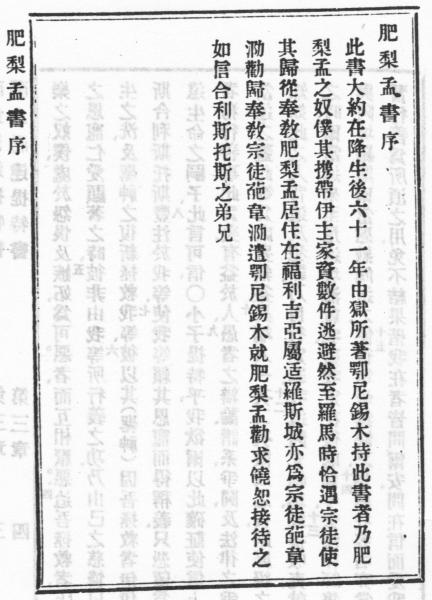 肥梨孟書序
此書大約在降生後六十一年由獄所著鄂尼錫木持此書者乃肥
梨孟之奴僕其携帶伊主家資數件逃避然至羅馬時恰遇宗徒使
其歸從奉教肥梨孟居住在福利吉亞屬适羅斯城亦爲宗徒葩韋
泐勸歸奉教宗徒葩韋泐遣鄂尼錫木就肥梨孟勸求饒恕接待之
如信合利斯托斯之弟兄
肥梨孟書序